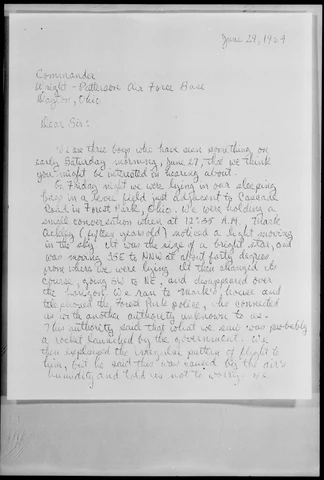 June 29, 1964
Commander
Wright-Patterson Air Force Base
Dayton, Ohio
Dear Sir:
We are three boys who have seen something on
early Saturday morning, June 27, that we think
you might be interested in hearing about.
On Friday night we were lying in our sleeping
bags in a level field just adjacent to
Road in Forest Park, Ohio. We were holding a
small conversation when at 12:35 A.M., Mark
(fifteen years old) noticed a light moving
in the sky. It was the size of a bright star, and
was moving SSE to NNW at about forty degrees
from where we were lying. It then changed its
course, going SW to NE, and disappeared over
the horizon. We ran to Mark's house and
telephoned the Forest Park police, who connected
us with another authority unknown to us.
This authority said that what we saw was probably
a rocket launched by the government. We
then explained the irregular pattern of flight to
him, but he said this was caused by the air's
humidity and told us not to worry. We